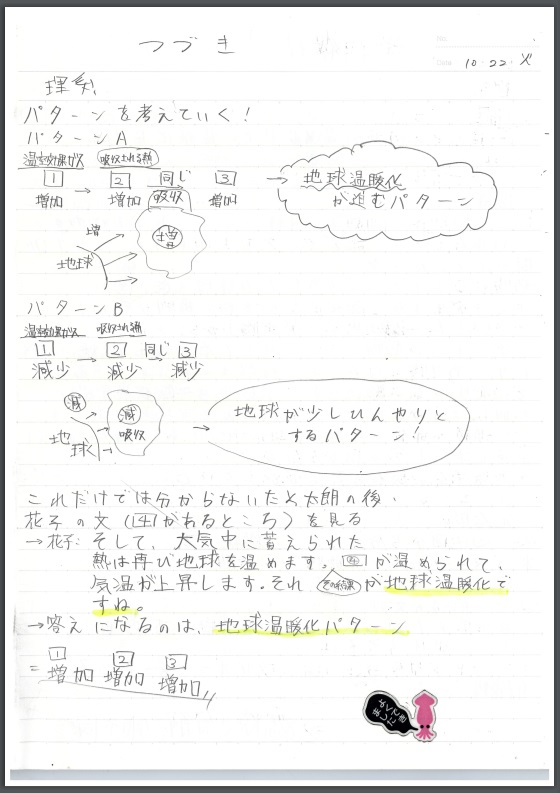 つづき
10 22 火
理科
パターンを考えていく!
パターンA
温室効果ガス 吸収される熱
1 → 2 同じ 3 →
増加 増加 吸収 増加
地球温暖化
が進むパターン
増
地球
パターンB
温室効果ガス 吸収される熱
1 → 2 同じ → 3
減少 減少 減少
減 減
地球 吸収 →
地球が少しひんやりと
するパターン!
これだけでは分からないため太朗の後、
花子の文(4があるところ)を見る
→花子:そして、大気中に蓄えられた
熱は再び地球を温めます。4が温められて、
気温が上昇します。それ その結果 が地球温暖化で
すね。
→答えになるのは、地球温暖化パターン
1 2 3
=増加 増加 増加
よくでき
ました